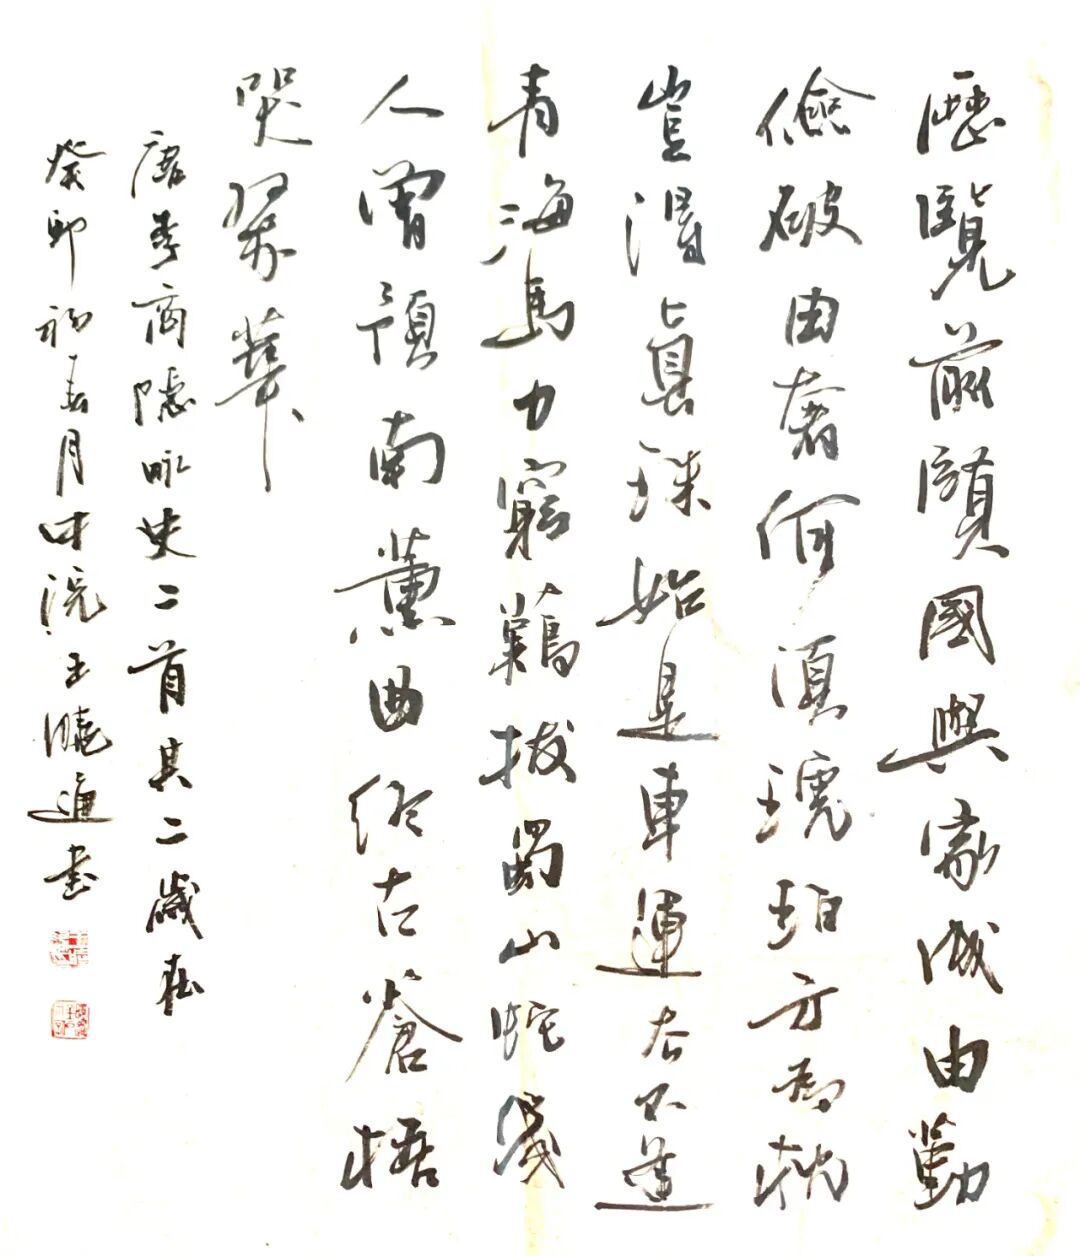 歷覽前賢國與家成由勤
儉破由奢何須琥珀方為枕
豈淂眞珠始是車運去不逢
青海馬力窮難拔蜀山蛇幾
人曾預南薰曲終古蒼梧
哭翠華
唐李商隱咏史二首其二歲在
癸卯初春月中浣王曉書